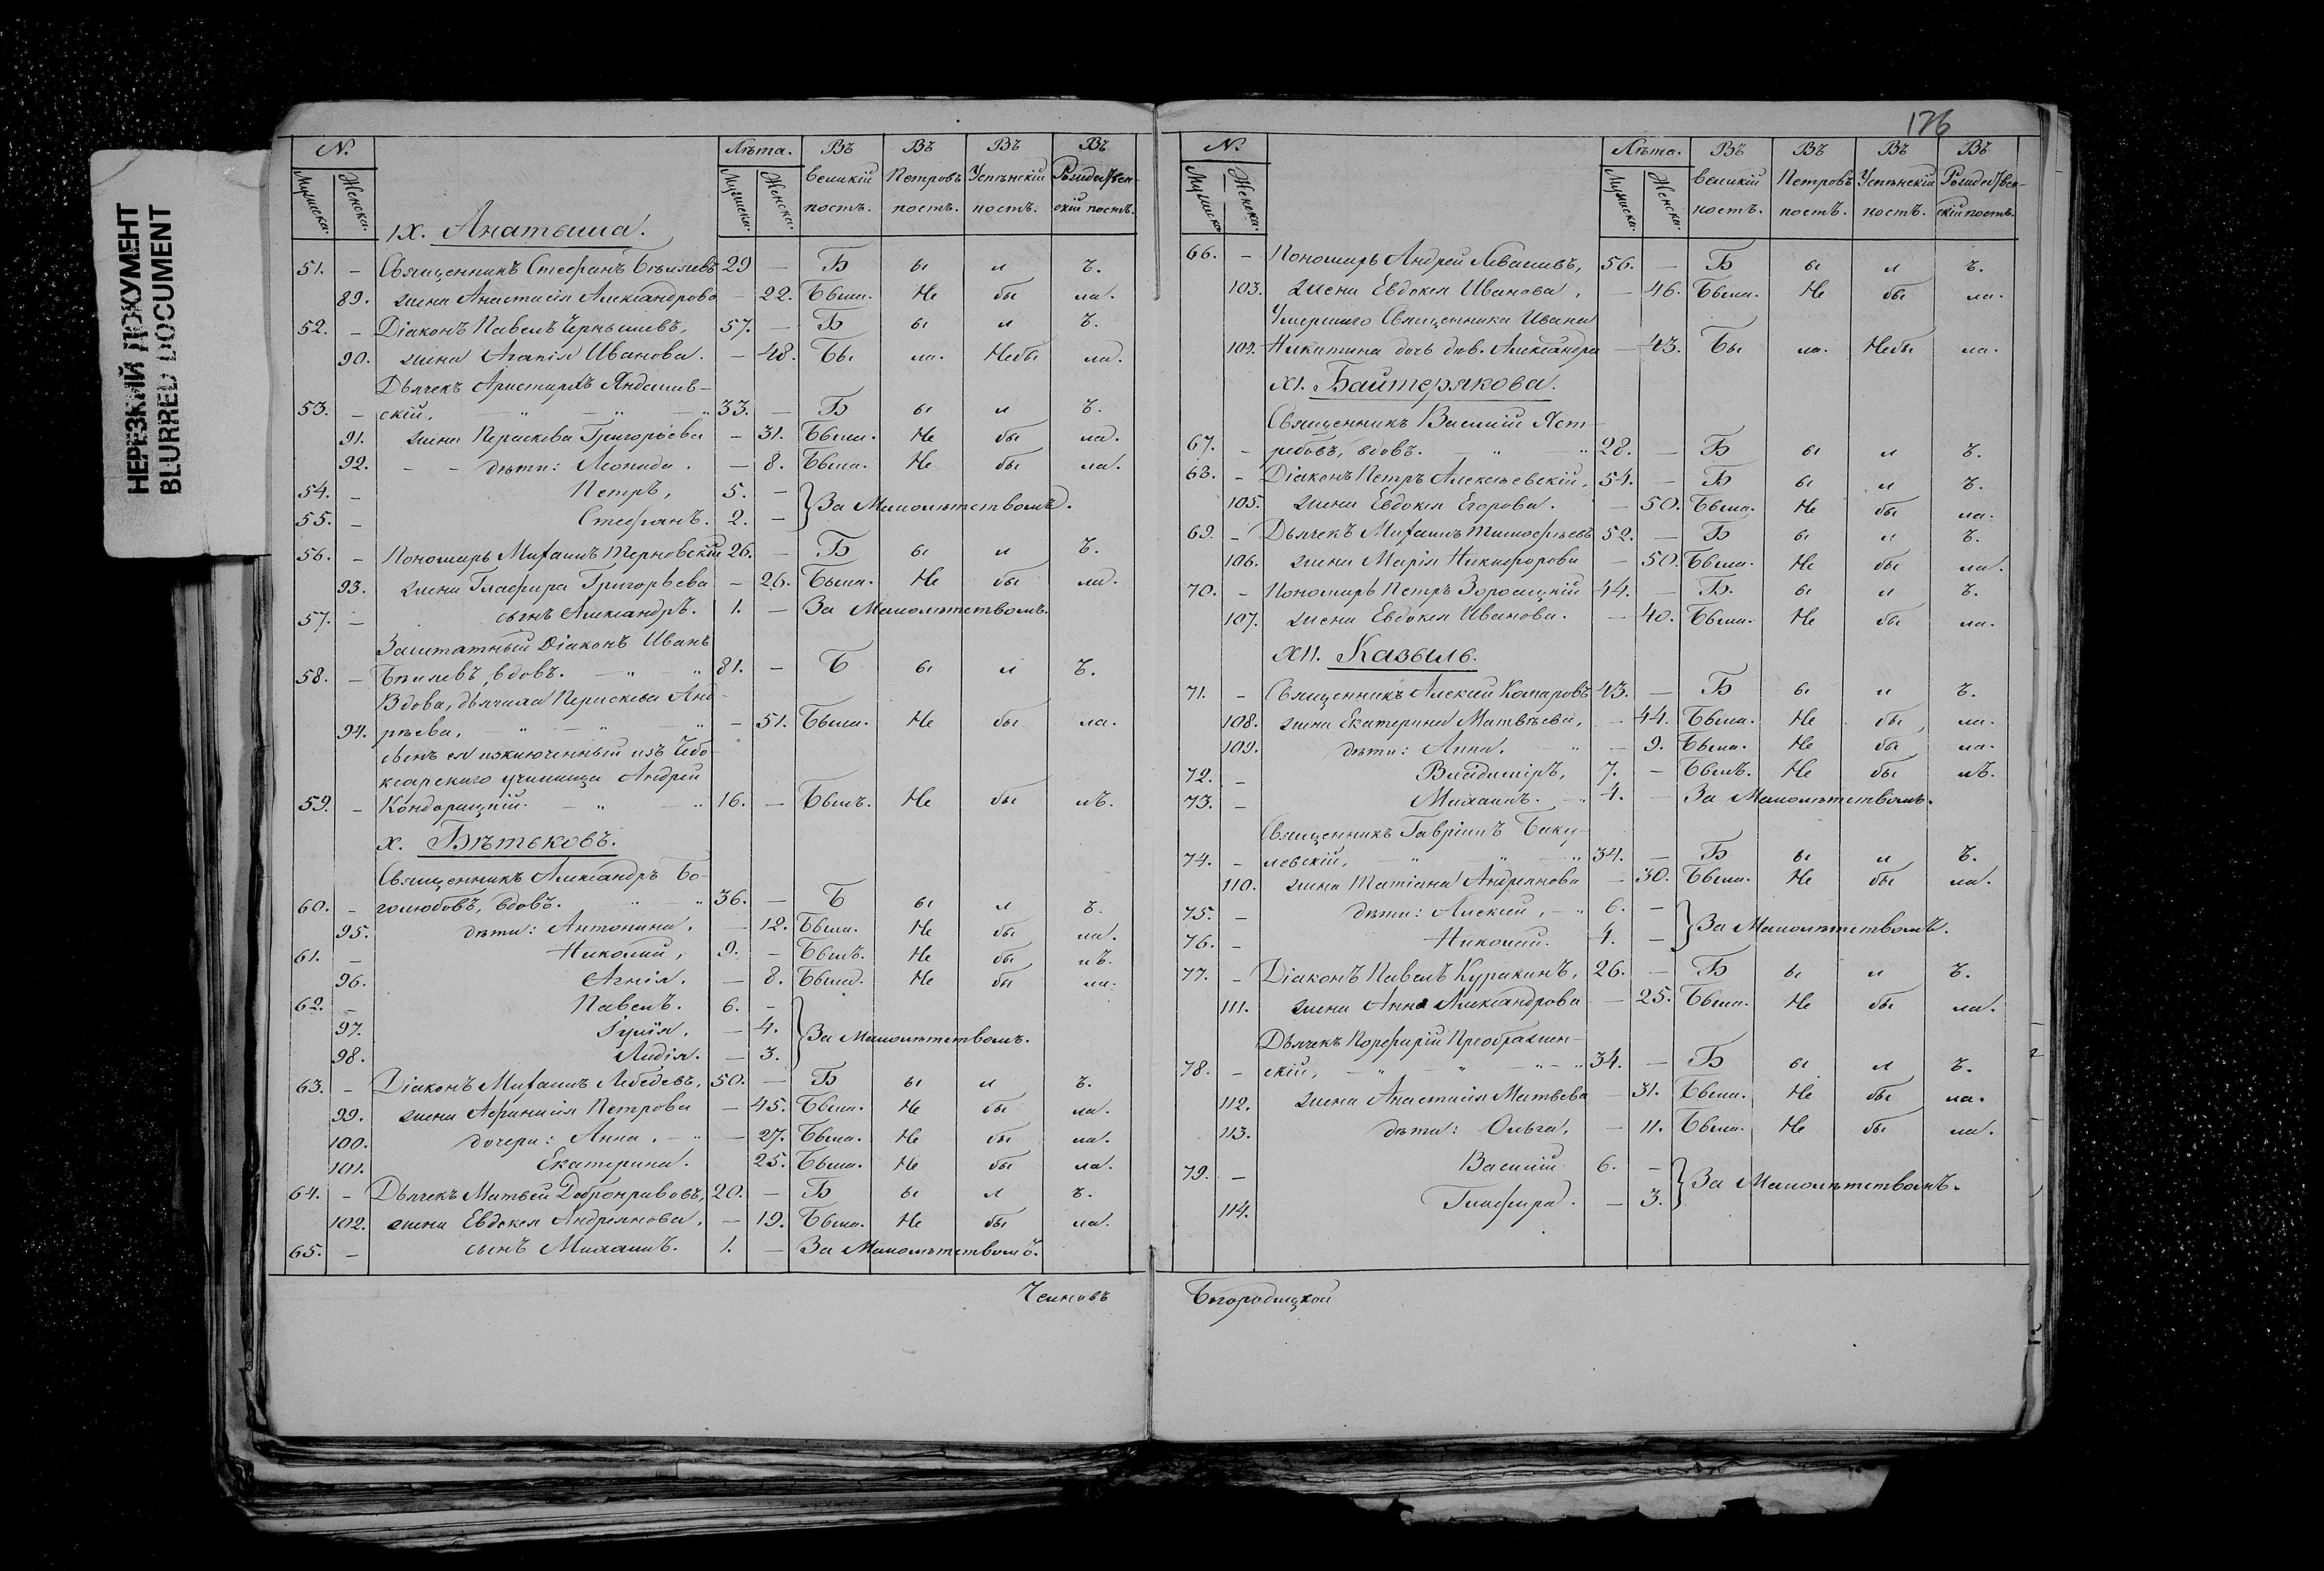 НЕРЕЗКИЙ ДОКУМЕНТ
BLURRED DOCUMENT
N. Лѣта. Въ Въ Въ Въ
Мужеска. Женска. Мужеска. Женска. великій Петровъ Успѣнскій Рождествен-
постъ. постъ. постъ. скій постъ.
IX. Анатыша.
51. – Священникъ Стефанъ Бѣляевъ 29 – Б ы л ъ.
89. жена Анастасія Александрова – 22. Была. Не бы ла.
52. – Діаконъ Павелъ Чернышевъ, 57. – Б ы л ъ.
90. жена Агапія Иванова. – 48. Бы ла. Не бы ла.
Дьячекъ Аристархъ
53. – скій. – „ – „ – „ 33. – Б ы л ъ.
91. жена Параскева Григорьева – 31. Была. Не бы ла.
92. – – дѣти: Леонида. – 8. Была. Не бы ла.
54. – Петръ, 5. –
55. – Стефанъ. 2. – } За Малолѣтствомъ.
56. – Пономарь Михаилъ Терновскій 26. – Б ы л ъ.
93. жена Глафира Григорьева – 26. Была. Не бы ла.
57. – сынъ Александръ. 1. – За Малолѣтствомъ.
Заштатный Діаконъ Иванъ
58. – Бѣляевъ, вдовъ. – „ – „ 81. – Б ы л ъ.
Вдова, дьячиха Параскева Анд-
94. рѣева, – „ – „ – 51. Была. Не бы ла.
сынъ ея изключенный изъ Чебо-
ксарскаго училища Андрей
59. – Кондорацкій. – „ – „ 16. – Былъ. Не бы лъ.
X. Бѣтьковъ.
Священникъ Александръ Бо-
60. – голюбовъ, вдовъ. „ – „ 36. – Б ы л ъ.
95. дѣти: Антонина, – 12. Была. Не бы ла.
61. – Николай, 9. – Былъ. Не бы лъ.
96. Агнія. – 8. Была. Не бы ла.
62. – Павелъ. 6. –
97. Іулія, – 4. } За Малолѣтствомъ.
98. Лидія. – 3.
63. – Діаконъ Михаилъ Лебедевъ, 50. – Б ы л ъ.
99. жена Афанасія Петрова – 45. Была. Не бы ла.
100. дочери: Анна, – „ – 27. Была. Не бы ла.
101. Екатерина. 25. Была. Не бы ла.
64. – Дьячекъ Матвей Добронравовъ, 20. – Б ы л ъ.
102. жена Евдокея Андреянова, – 19. Была. Не бы ла.
65. – сынъ Михаилъ. 1. – За Малолѣтствомъ.
Членовъ
176
N. Лѣта. Въ Въ Въ Въ
Мужеска. Женска. Мужеска. Женска. великій Петровъ Успѣнскій Рождествен-
постъ. постъ. постъ. скій постъ.
66. – Пономарь Андрей Ливановъ, 56. – Б ы л ъ.
103. жена Евдокея Иванова, – 46. Была. Не бы ла.
Умершаго Священника Ивана
104. Никитина дочь дѣв. Александра – 43. Бы ла. Не бы ла.
XI. Байтерякова.
Священникъ Василій Яст-
67. – ребовъ, вдовъ. – „ „ 28. – Б ы л ъ.
68. – Діаконъ Петръ Алексѣевскій, 54. – Б ы л ъ.
105. жена Евдокея Егорова. – 50. Была. Не бы ла.
69. – Дьячекъ Михаилъ Тимофѣевъ 52. – Б ы л ъ.
106. жена Марія Никифорова – 50. Была. Не бы ла.
70. – Пономарь Петръ 44. – Б. ы л ъ.
107. жена Евдокея Иванова. – 40. Была. Не бы ла.
XII. Казыль.
71. – Священникъ Алексій Комаровъ 43. – Б ы л ъ.
108. жена Екатерина Матвѣева, – 44. Была. Не бы ла.
109. дѣти: Анна, „ – 9. Была. Не бы ла.
72. – Владиміръ, 7. – Былъ. Не бы лъ.
73. – Михаилъ. – „ 4. – За Малолѣтствомъ.
Священникъ Гавріилъ Баку-
74. – левскій, „ „ – „ 34. – Б ы л ъ.
110. жена Татіана Андреянова – 30. Была. Не бы ла.
75. – дѣти: Алексій, – „ 6. –
76. – Николай. 4. – } За Малолѣтствомъ.
77. – Діаконъ Павелъ Куракинъ, 26. – Б ы л ъ.
111. жена Анна Александрова – 25. Была. Не бы ла.
Дьячекъ Порфирій Преображен-
78. – скій, – „ „ – „ – „ 34. – Б ы л ъ.
112. жена Анастасія Матвѣева – 31. Была. Не бы ла.
113. дѣти: Ольга, – 11. Была. Не бы ла.
79. – Василій 6. –
114. Глафира. – 3. } За Малолѣтствомъ.
Богородицкой